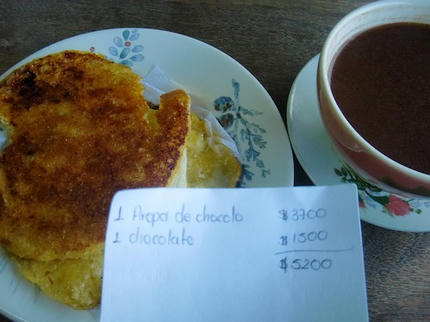 1 Arepa de chocolo $3700
1 chocolate $1500
$5200